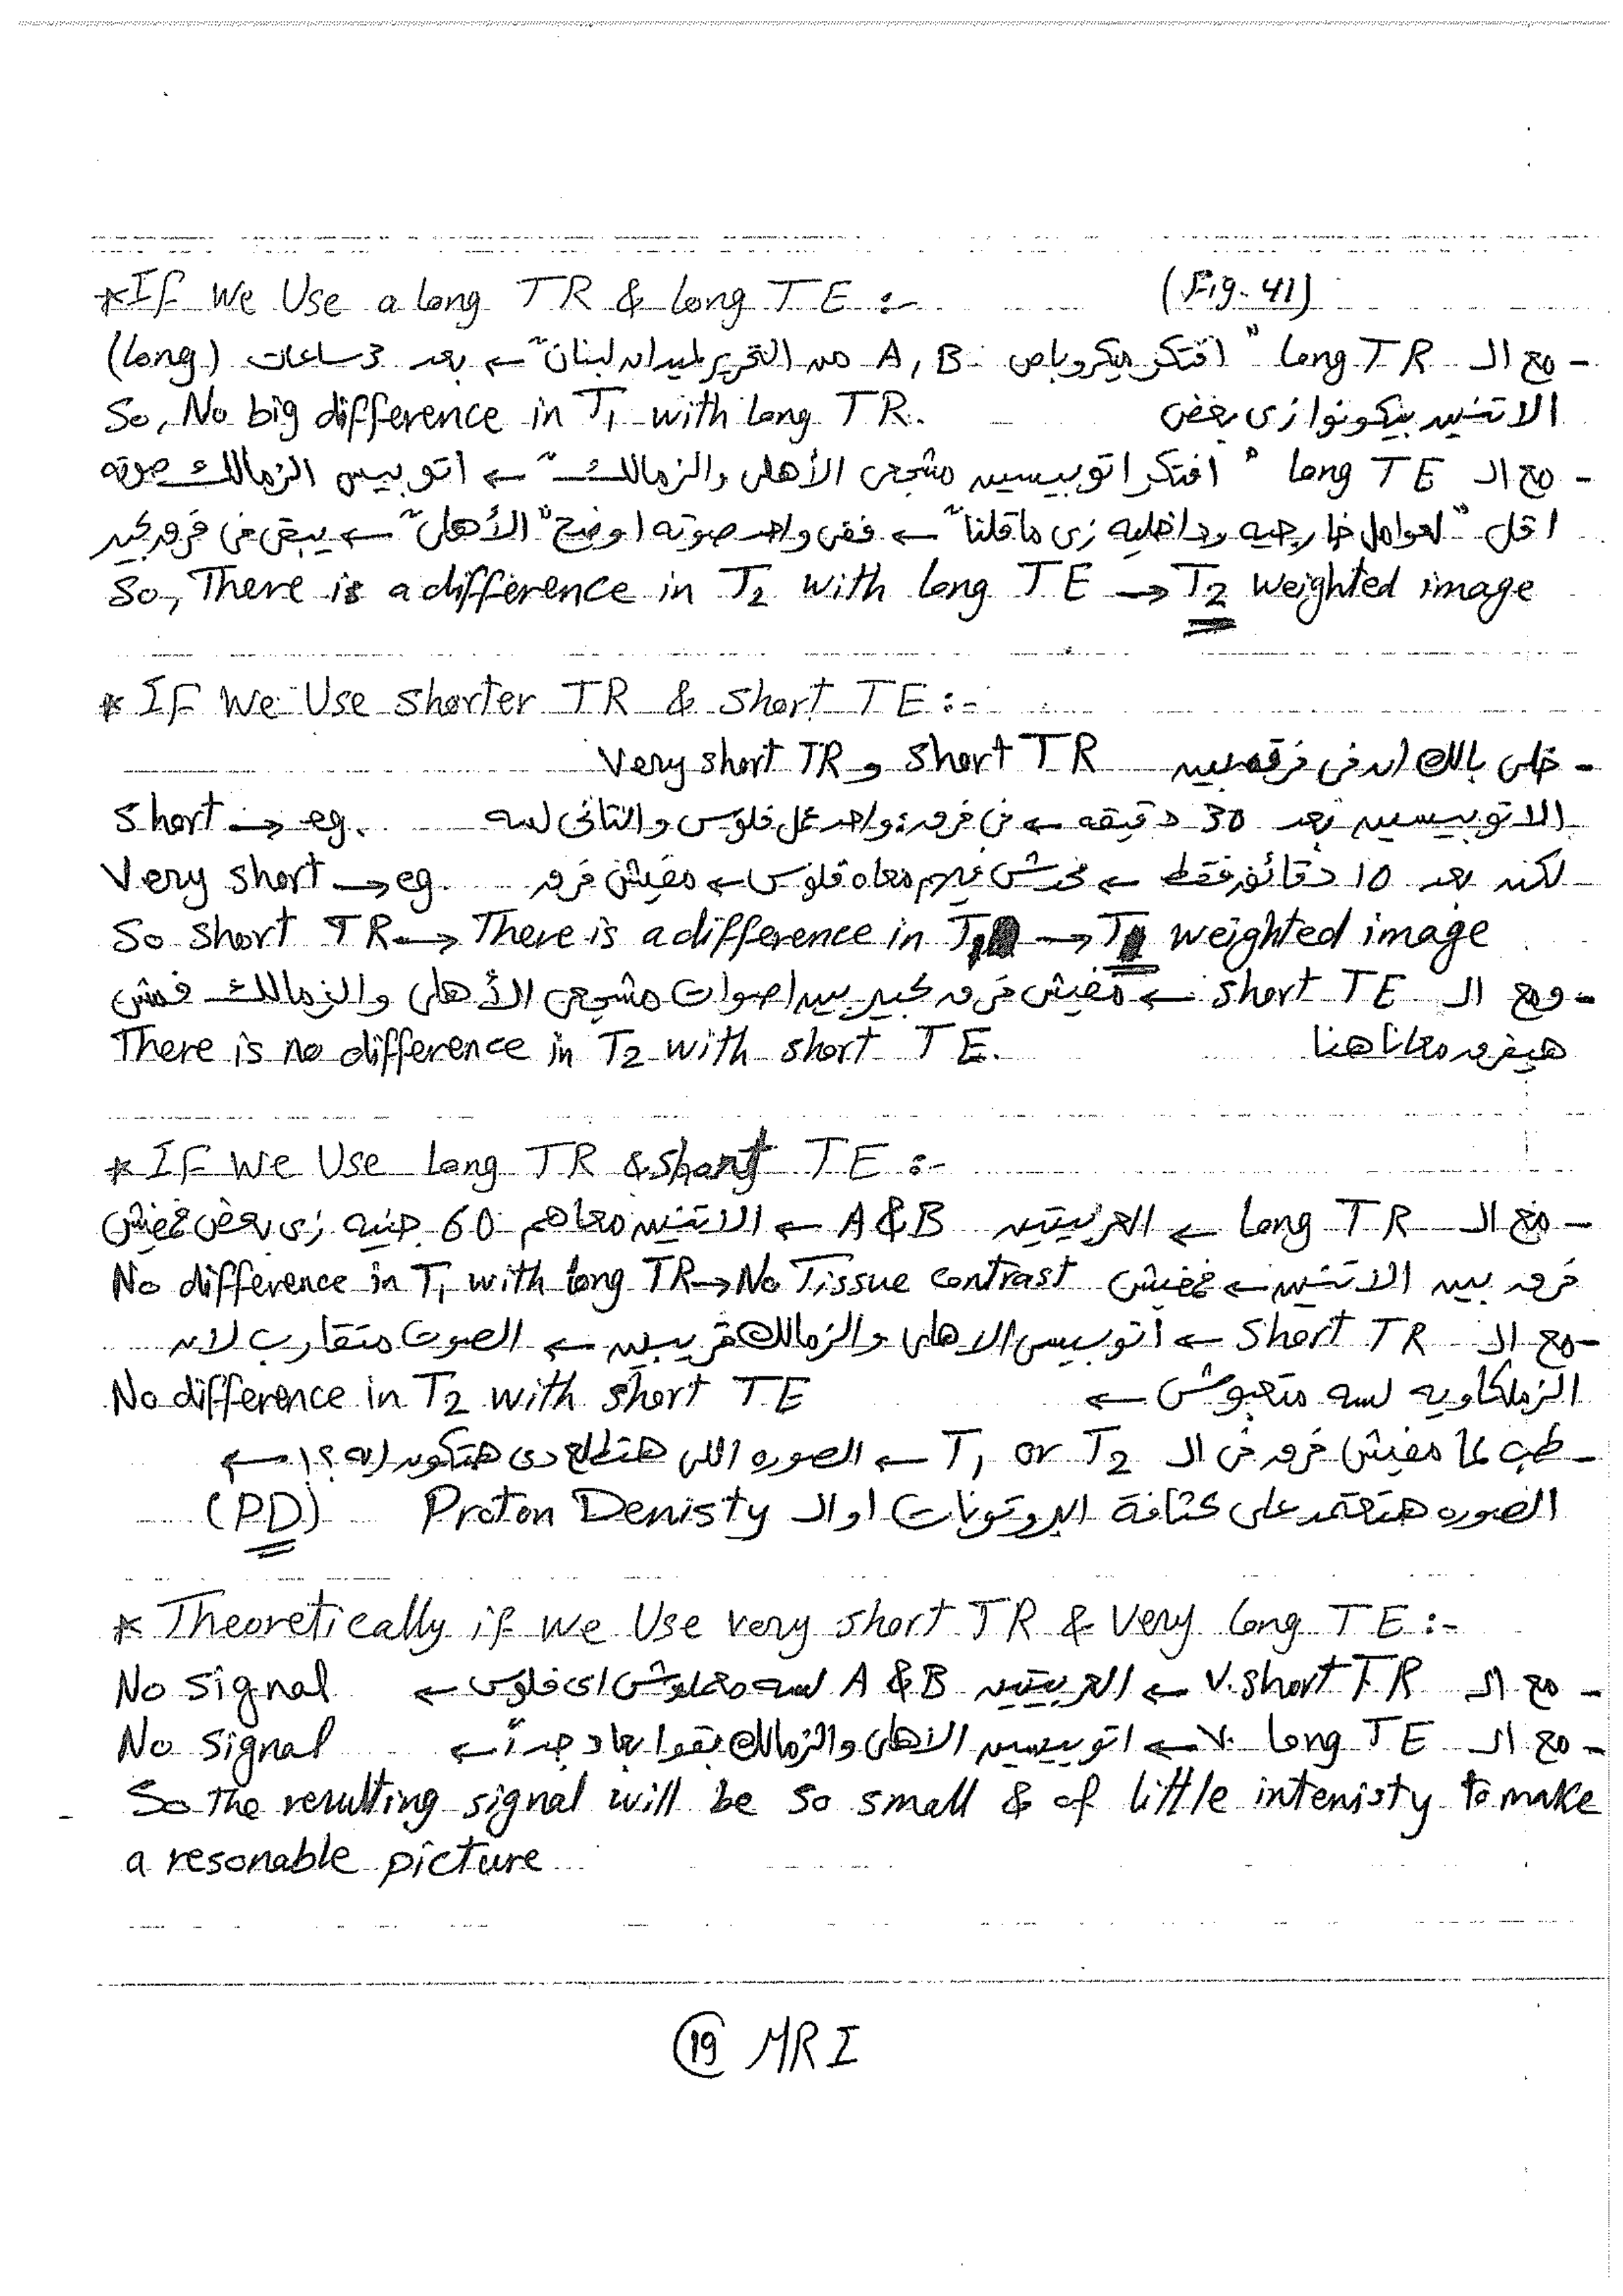 *IF We Use a long TR & long TE :- (Fig. 41)
- مع الـ long TR " افتكر ميكروباص A, B من التحرير لميدان لبنان" ← بعد 3 ساعات (long)
الاتنين بيكونوا زى بعض So, No big difference in T1 with long TR.
- مع الـ long TE " افتكر اتوبيسين مشجعى الأهلى والزمالك" ← اتوبيس الزمالك صوته
اقل "لعوامل خارجيه وداخليه زى ماقلنا" ← ففى واحد صوته اوضح "الأهلى" ← يبقى فى فرق كبير
So, There is a difference in T2 with long TE → T2 weighted image
* IF We Use shorter TR & short TE :-
- خلى بالك ان فى فرق بين short TR و Very short TR
الاتوبيسين بعد 30 دقيقه ← فى فرق، واحد عمل فلوس والتانى لسه short → eg.
لكن بعد 10 دقائق فقط ← محدش فيهم معاه فلوس ← مفيش فرق Very short → eg.
So short TR → There is a difference in T1 → T1 weighted image
- ومع الـ short TE ← مفيش فرق كبير بين اصوات مشجعى الأهلى والزمالك فمش
هيفرق معانا هنا There is no difference in T2 with short TE.
* IF We Use Long TR & short TE :-
- مع الـ long TR ← العربيتين A & B ← الاتنين معاهم 60 جنيه زى بعض فمفيش
فرق بين الاتنين ← فمفيش No difference in T1 with long TR → No Tissue contrast
- مع الـ Short TR ← اتوبيسى الاهلى والزمالك قريبين ← الصوت متقارب لان
الزملكاويه لسه متعبوش ← No difference in T2 with short TE
- طب لما مفيش فرق فى الـ T1 or T2 ← الصوره اللى هتطلع دى هتكون ايه ؟! ←
الصوره هتعتمد على كثافة البروتونات او الـ Proton Denisty (PD)
* Theoretically if we Use very short TR & Very long TE :-
- مع الـ V. short TR ← العربيتين A & B لسه معملوش اى فلوس ← No signal
- مع الـ V. long TE ← اتوبيسين الاهلى والزمالك بقوا بعاد جداً ← No signal
So The resulting signal will be so small & of little intenisty to make
a resonable picture
19 MRI